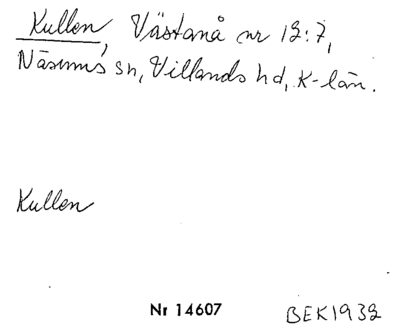 Kullen, Västanå nr 12:7,
Näsums sn, Villands hd, K-län.
Kullen
Nr 14607
BEK1932